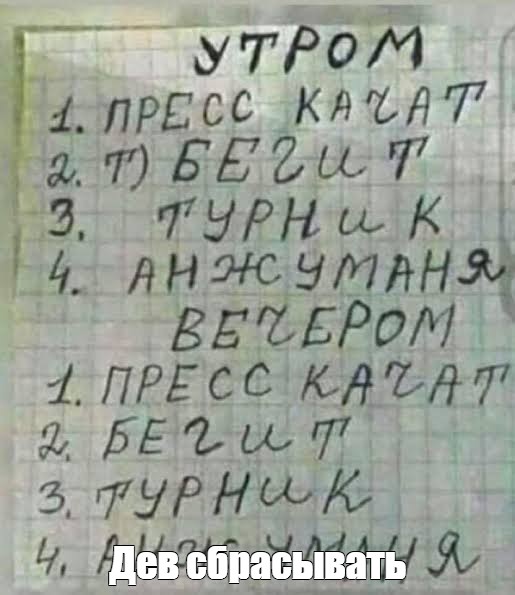 УТРОМ
1. ПРЕСС КАЧАТ
2. Т) БЕГИТ
3. ТУРНИК
4. АНЖУМАНЯ
ВЕЧЕРОМ
1. ПРЕСС КАЧАТ
2. БЕГИТ
3. ТУРНИК
4. АНЖУМАНЯ
Дев сбрасывать